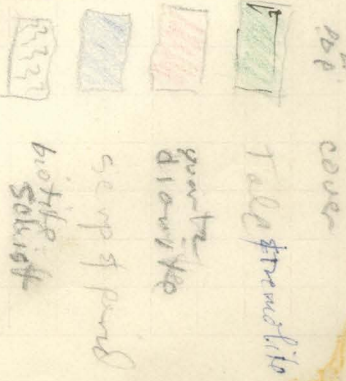 cover
Talc tremolite
quartz
diorite
serp & perid
biotite
schist